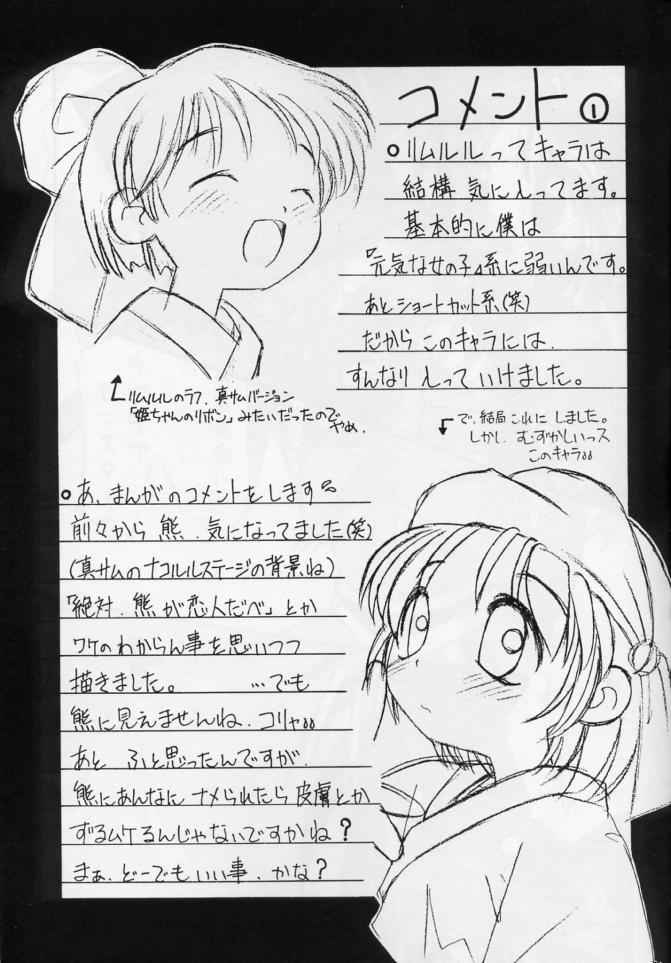 コメント①
○リムルルってキャラは
結構 気に入ってます。
基本的に僕は
『元気な女の子』系に弱いんです。
あとショートカット系(笑)
だから このキャラには、
すんなり 入って いけました。
リムルルのラフ、真サムバージョン
「姫ちゃんのリボン」みたいだったので
やめ、
で、結局 これに しました。
しかし、むずかしいっス
このキャラ。。
○あ、まんがのコメントをします。
前々から 熊、気になってました(笑)
(真サムのナコルルステージの背景ね)
「絶対、熊が恋人だべ」とか
ワケのわからん事を思いつつ
描きました。 …でも
熊に見えませんね、コリャ。。
あと ふと思ったんですが、
熊にあんなに ナメられたら 皮膚とか
ずるムケるんじゃないですかね？
まぁ、どーでもいい事、かな？